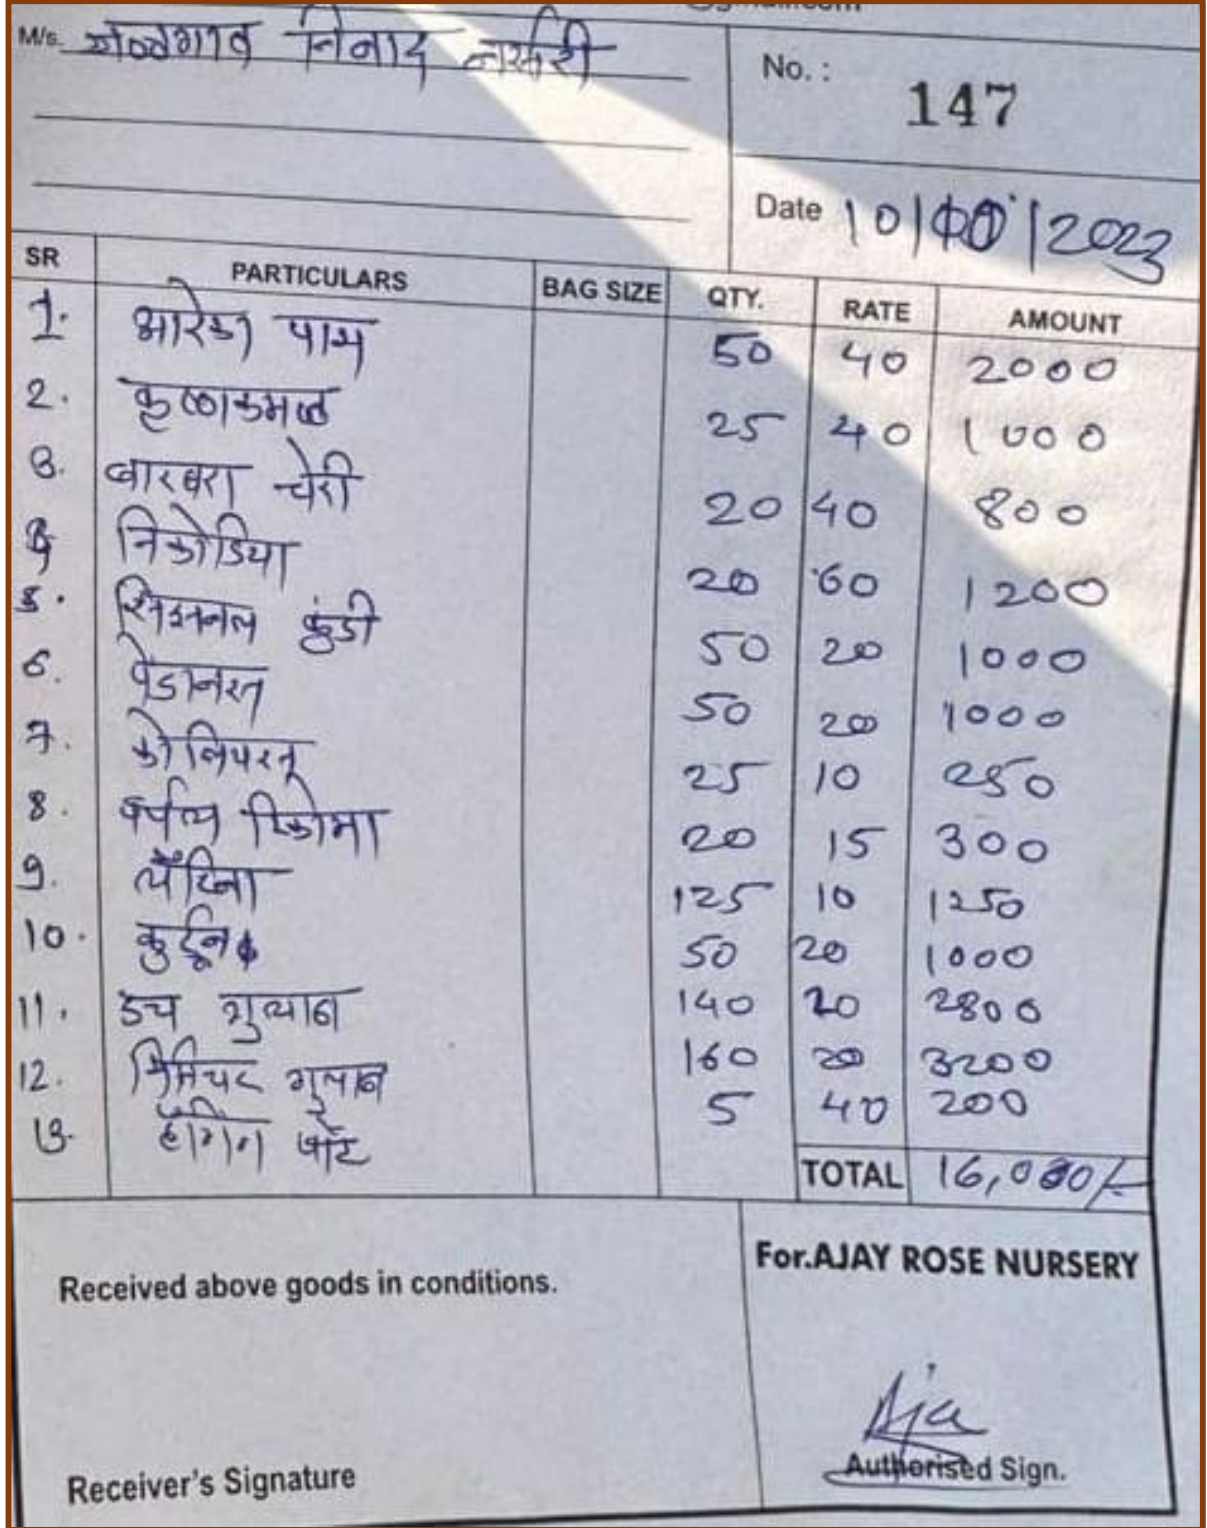 M/s. जळगाव निनाद नर्सरी
No. : 147
Date 10/10/2023
SR PARTICULARS BAG SIZE QTY. RATE AMOUNT
1. आरेका पाम 50 40 2000
2. कृष्णकमळ 25 40 1000
3. बारबरा चेरी 20 40 800
4 निकोडिया 20 60 1200
5. सिझनल कुंडी 50 20 1000
6. पेडानस 50 20 1000
7. 25 10 250
8. पर्पल टिकोमा 20 15 300
9. 125 10 1250
10. 50 20 1000
11. डच गुलाब 140 20 2800
12. मिनिचर गुलाब 160 20 3200
13. हँगिंग पॉट 5 40 200
TOTAL 16,000/-
For.AJAY ROSE NURSERY
Received above goods in conditions.
Aja
Authorised Sign.
Receiver's Signature